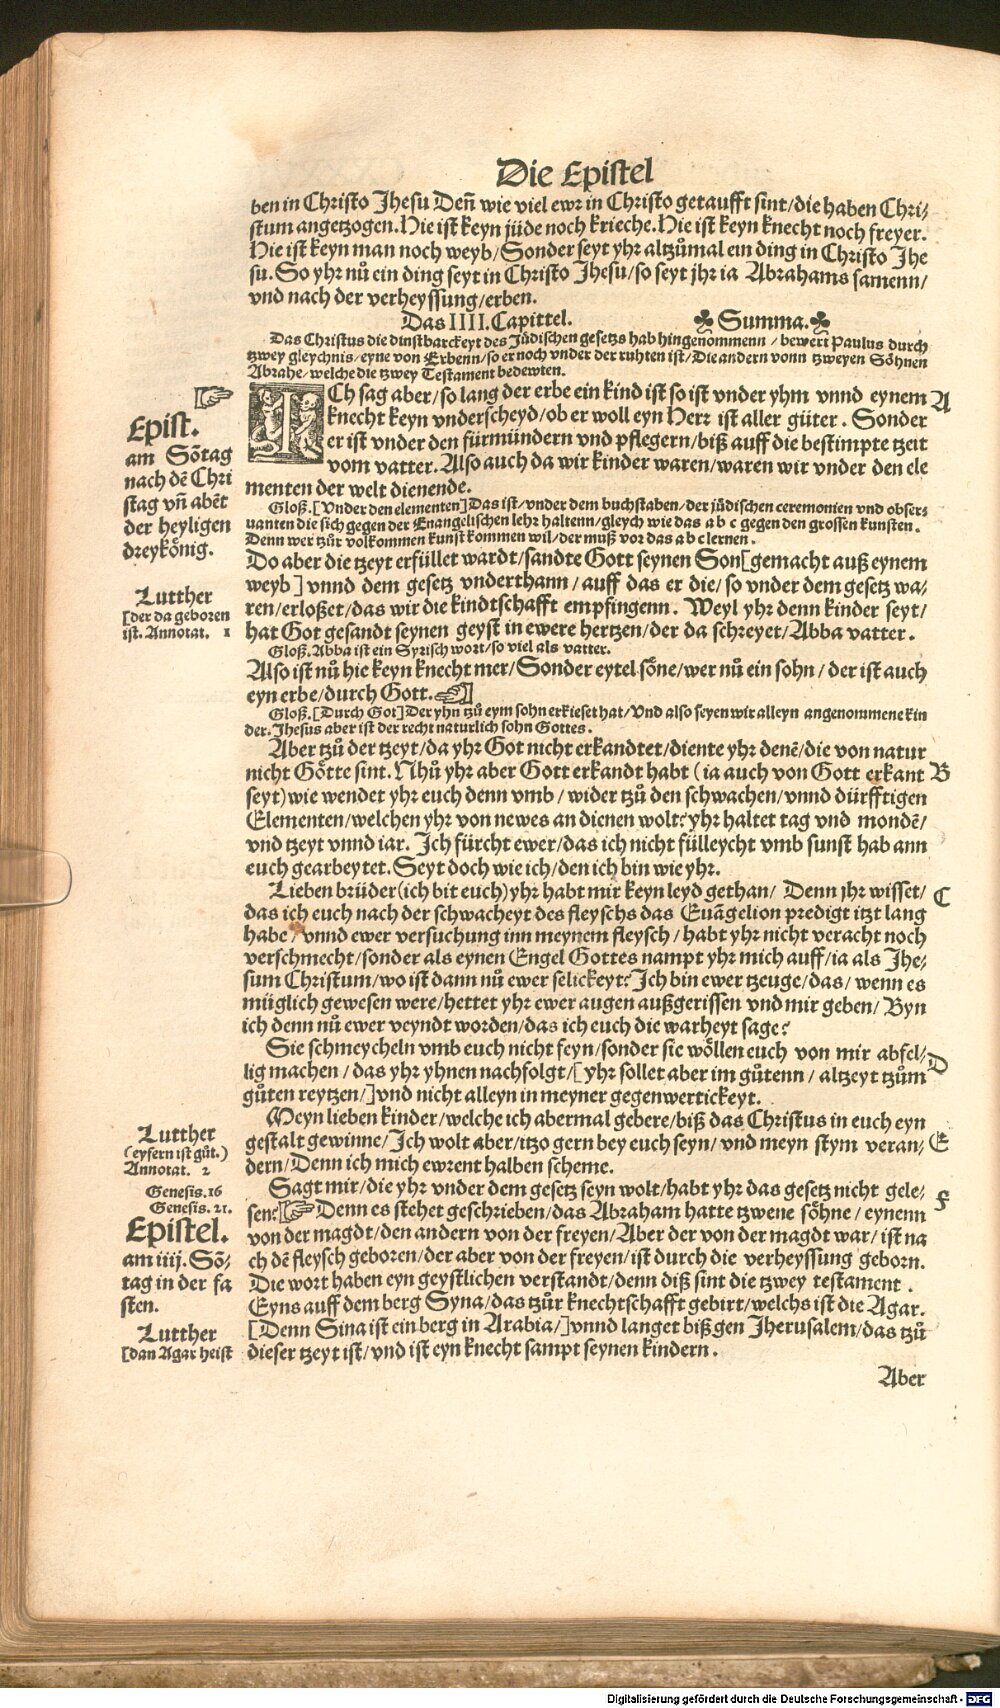 Die Epistel
ben in Christo Jhesu Deñ wie viel ewr in Christo getaufft sint/die haben Chri⸗
stum angetzogen. Hie ist keyn jüde noch krieche. Hie ist keyn knecht noch freyer.
Hie ist keyn man noch weyb/Sonder seyt yhr altzůmal ein ding in Christo Jhe
su. So yhr nů ein ding seyt in Christo Jhesu/so seyt jhr ia Abrahams samenn/
vnd nach der verheyssung/erben.
Das IIII. Capittel. ♣ Summa. ♣
Das Christus die dinstbarckeyt des Jüdischen gesetzs hab hingenommenn/beweri Paulus durch
tzwey gleychnis/eyne von Erbenn/so er noch vnder der ruhten ist/Die andern vonn tzweyen Söhnen
Abrahe/welche die tzwey Testament bedewten.
ICh sag aber/so lang der erbe ein kind ist so ist vnder yhm vnnd eynem A
knecht keyn vnderscheyd/ob er woll eyn Herr ist aller güter. Sonder
er ist vnder den fürmündern vnd pflegern/biß auff die bestimpte tzeit
vom vatter. Also auch da wir kinder waren/waren wir vnder den ele
menten der welt dienende.
Epist.
am Sõtag
nach dẽ Chri
stag vñ abẽt
der heyligen
dreykönig.
Gloß. [Vnder den elementen] Das ist/vnder dem buchstaben/der jüdischen ceremonien vnd obser⸗
uanten die sich gegen der Enangelischen lehr haltenn/gleych wie das a b c gegen den grossen kunsten.
Denn wer tzůr volkommen kunst kommen wil/der muß vor das a b c lernen.
Do aber die tzeyt erfüllet wardt/sandte Gott seynen Son[gemacht auß eynem
weyb] vnnd dem gesetz vnderthann/auff das er die/so vnder dem gesetz wa⸗
ren/erloßet/das wir die kindtschafft empfingenn. Weyl yhr denn kinder seyt/
hat Got gesandt seynen geyst in ewere hertzen/der da schreyet/Abba vatter.
Lutther
[der da geboren
ist. Annotat. 1
Gloß. Abba ist ein Syrisch wort/so viel als vatter.
Also ist nů hie keyn knecht mer/Sonder eytel söne/wer nů ein sohn/der ist auch
eyn erbe/durch Gott.
Gloß. [Durch Got] Der yhn tzů eym sohn erkieset hat/Vnd also seyen wir alleyn angenommene kin
der. Jhesus aber ist der recht naturlich sohn Gottes.
Aber tzů der tzeyt/da yhr Got nicht erkandtet/diente yhr denẽ/die von natur
nicht Götte sint. Nhů yhr aber Gott erkandt habt (ia auch von Gott erkant B
seyt) wie wendet yhr euch denn vmb/wider tzů den schwachen/vnnd dürfftigen
Elementen/welchen yhr von newes an dienen wolt? yhr haltet tag vnd mondẽ/
vnd tzeyt vnnd iar. Ich fürcht ewer/das ich nicht fülleycht vmb sunst hab ann
euch gearbeytet. Seyt doch wie ich/den ich bin wie yhr.
Lieben brüder (ich bit euch) yhr habt mir keyn leyd gethan/Denn jhr wisset/ C
das ich euch nach der schwacheyt des fleyschs das Euãgelion predigt itzt lang
habe/vnnd ewer versuchung inn meynem fleysch/habt yhr nicht veracht noch
verschmecht/sonder als eynen Engel Gottes nampt yhr mich auff/ia als Jhe⸗
sum Christum/wo ist dann nů ewer selickeyt? Ich bin ewer tzeuge/das/wenn es
müglich gewesen were/hettet yhr ewer augen außgerissen vnd mir geben/Byn
ich denn nů ewer veyndt worden/das ich euch die warheyt sage?
Sie schmeycheln vmb euch nicht feyn/sonder sie wöllen euch von mir abfel⸗ D
lig machen/das yhr yhnen nachfolgt/[yhr sollet aber im gůtenn/altzeyt tzům
gůten reytzen/] vnd nicht alleyn in meyner gegenwertickeyt.
Meyn lieben kinder/welche ich abermal gebere/biß das Christus in euch eyn
gestalt gewinne/Ich wolt aber/itzo gern bey euch seyn/vnd meyn stym veran⸗ E
dern/Denn ich mich ewrent halben scheme.
Lutther
(eyfern ist gůt.)
Annotat. 2
Sagt mir/die yhr vnder dem gesetz seyn wolt/habt yhr das gesetz nicht gele⸗ F
sen? Denn es stehet geschrieben/das Abraham hatte tzwene söhne/eynenn
von der magdt/den andern von der freyen/Aber der von der magdt war/ist na
ch dẽ fleysch geboren/der aber von der freyen/ist durch die verheyssung geborn.
Die wort haben eyn geystlichen verstandt/denn diß sint die tzwey testament.
Eyns auff dem berg Syna/das tzůr knechtschafft gebirt/welchs ist die Agar.
[Denn Sina ist ein berg in Arabia/] vnnd langet biß gen Jherusalem/das tzů
dieser tzeyt ist/vnd ist eyn knecht sampt seynen kindern.
Genesis. 16
Genesis. 21.
Epistel.
am iiij. Sõ⸗
tag in der fa
sten.
Lutther
[dan Agar heist
Aber
Digitalisierung gefördert durch die Deutsche Forschungsgemeinschaft - DFG